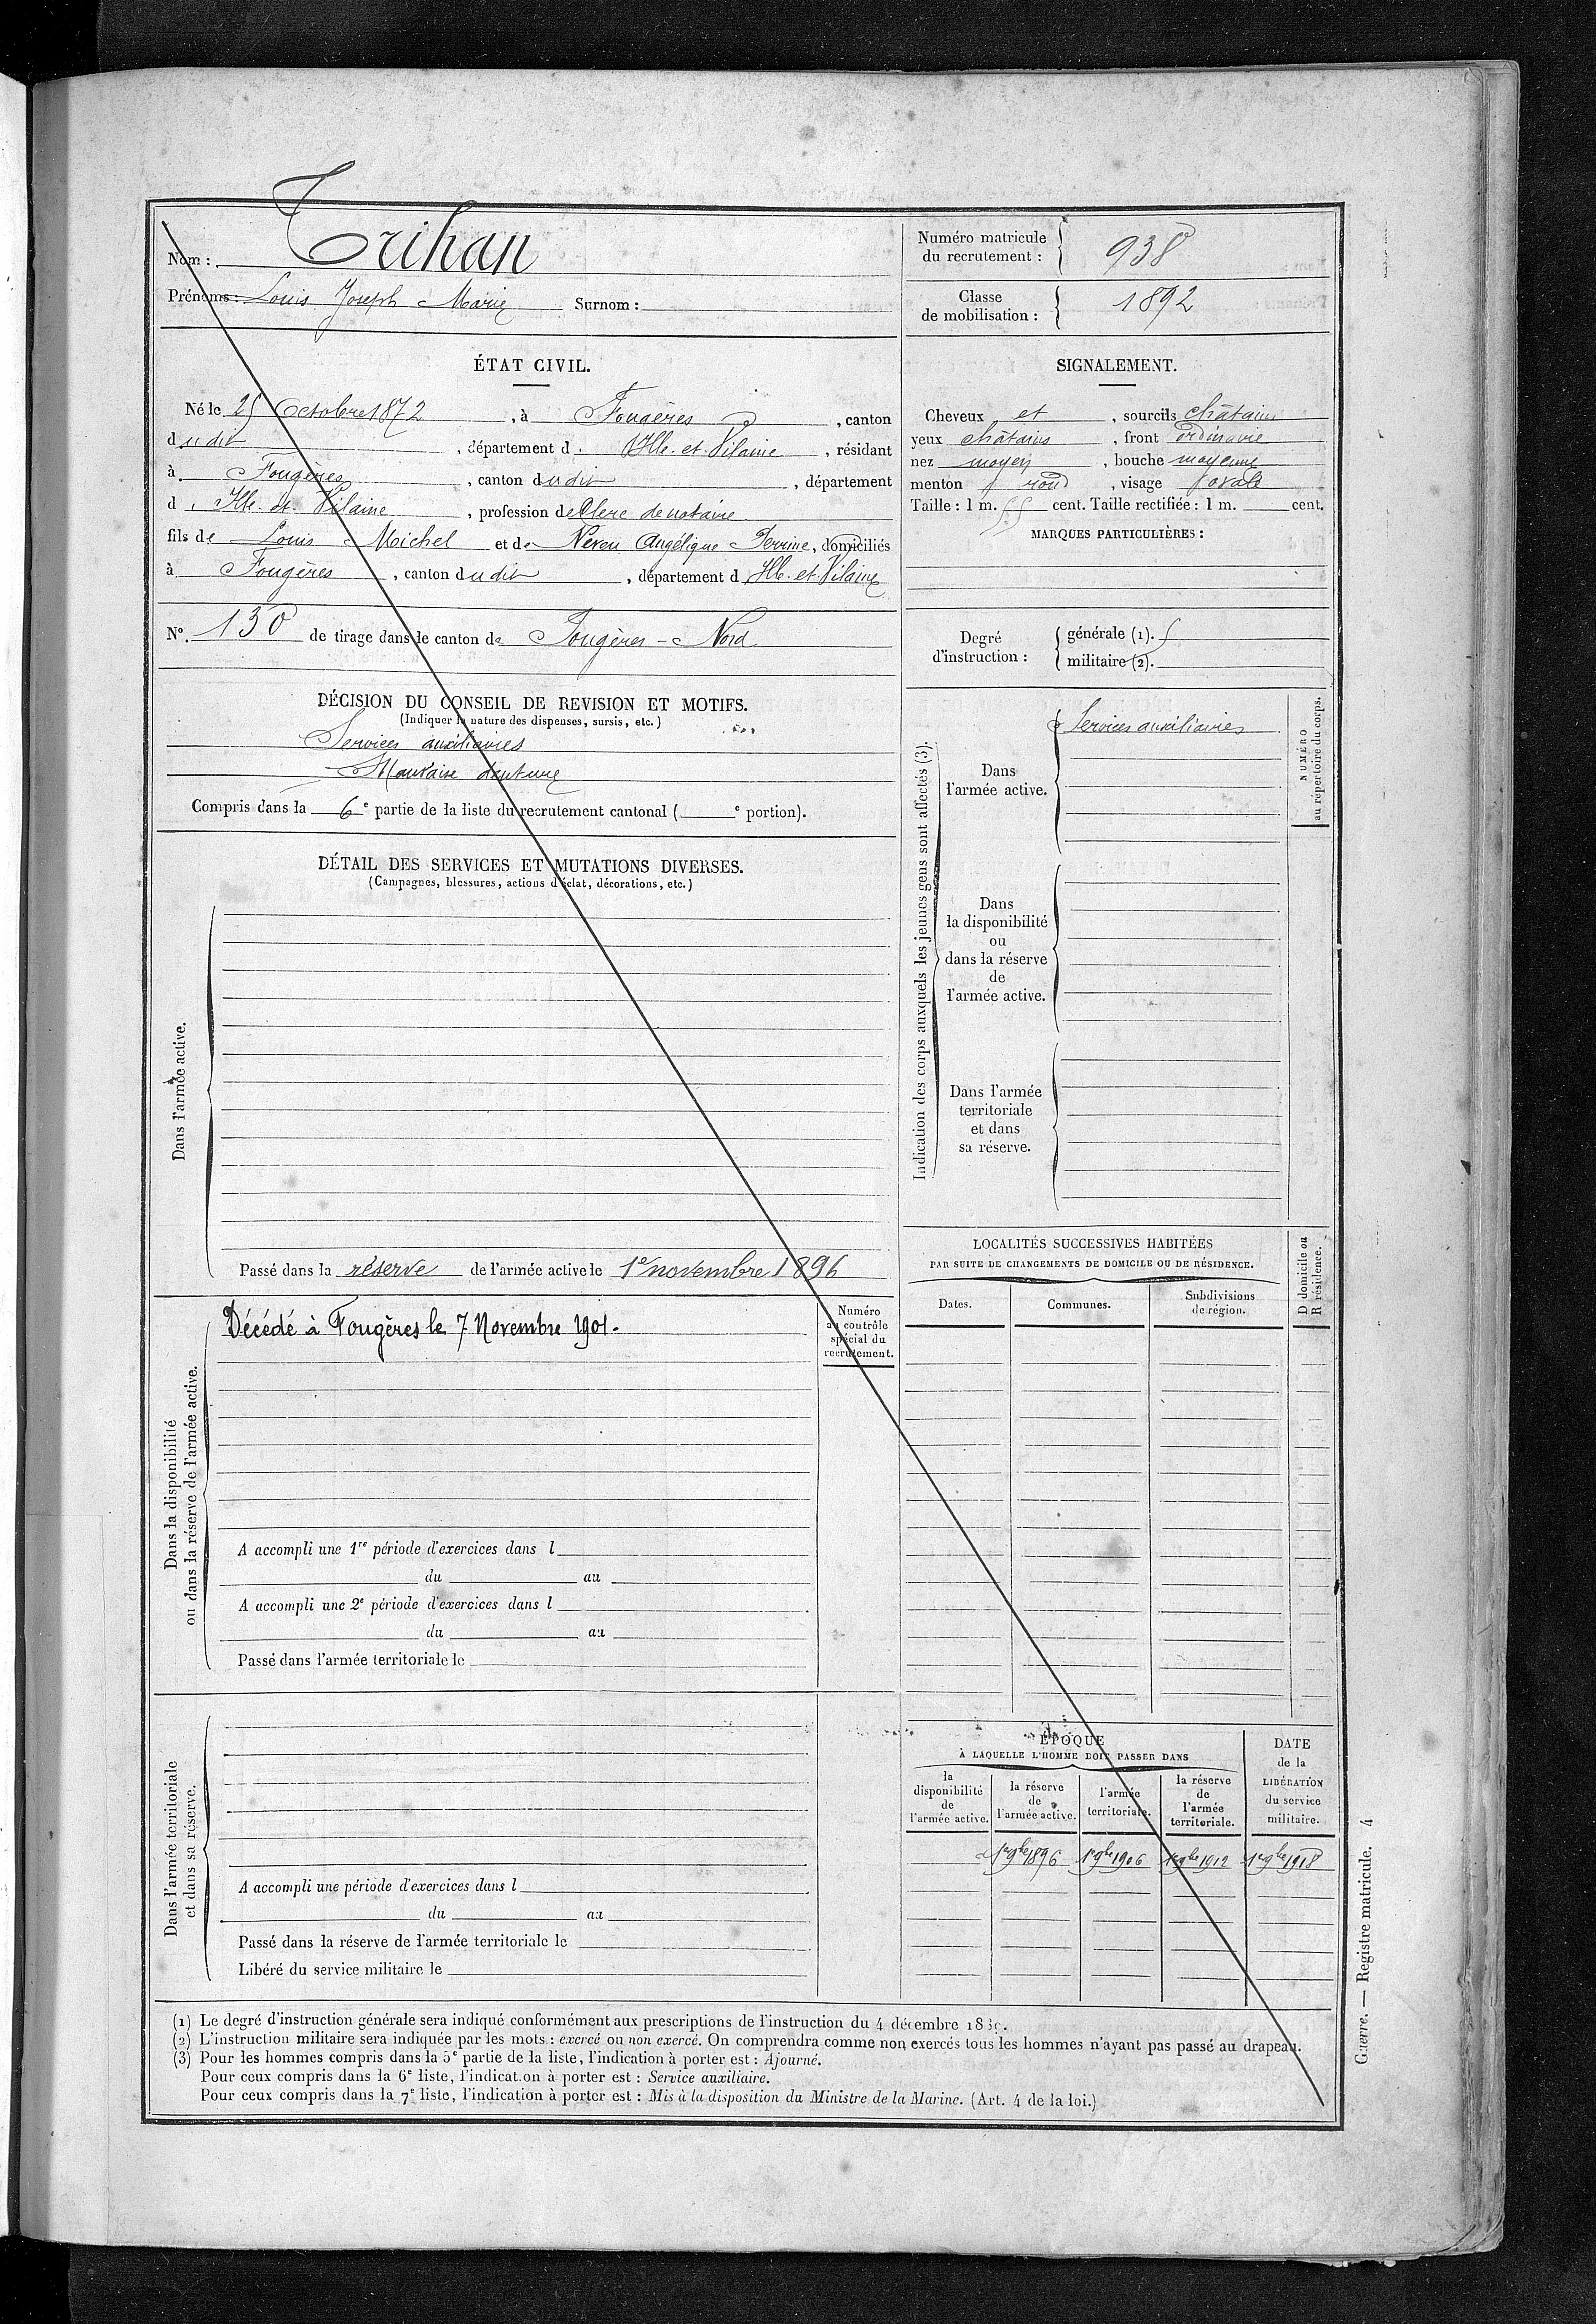 Nom : Trihan
Prénoms : Louis Joseph Marie Surnom :
Numéro matricule
du recrutement : 938
Classe
de mobilisation : 1892
ÉTAT CIVIL.
Né le 25 Octobre 1872, à Fougères, canton
dudit, département d. Ille-et-Vilaine, résidant
à Fougères, canton dudit, département
d. Ille-et-Vilaine, profession de Clerc de notaire
fils de Louis Michel et de Neveu Angélique Perrine, domiciliés
à Fougères, canton dudit, département d Ille-et-Vilaine
N°. 130 de tirage dans le canton de Fougères-Nord
SIGNALEMENT.
Cheveux et, sourcils châtains
yeux châtains, front ordinaire
nez moyen, bouche moyenne
menton rond, visage ovale
Taille : 1 m. 55 cent. Taille rectifiée : 1 m. cent.
MARQUES PARTICULIÈRES :
Degré
d'instruction :
générale (1).
militaire (2).
DÉCISION DU CONSEIL DE REVISION ET MOTIFS.
(Indiquer la nature des dispenses, sursis, etc.)
Services auxiliaires
Mauvaise denture
Compris dans la 6e partie de la liste du recrutement cantonal ( e portion).
DÉTAIL DES SERVICES ET MUTATIONS DIVERSES.
(Campagnes, blessures, actions d'éclat, décorations, etc.)
Dans l'armée active.
Passé dans la réserve de l'armée active le 1er novembre 1896
Dans la disponibilité
ou dans la réserve de l'armée active.
Décédé à Fougères le 7 Novembre 1901.
Numéro
au contrôle
spécial du
recrutement.
A accompli une 1re période d'exercices dans l
du au
A accompli une 2e période d'exercices dans l
du au
Passé dans l'armée territoriale le
Dans l'armée territoriale
et dans sa réserve.
A accompli une période d'exercices dans l
du au
Passé dans la réserve de l'armée territoriale le
Libéré du service militaire le
Indication des corps auxquels les jeunes gens sont affectés (3).
Dans
l'armée active.
Services auxiliaires
NUMÉRO
au répertoire du corps.
Dans
la disponibilité
ou
dans la réserve
de
l'armée active.
Dans l'armée
territoriale
et dans
sa réserve.
LOCALITÉS SUCCESSIVES HABITÉES
PAR SUITE DE CHANGEMENTS DE DOMICILE OU DE RÉSIDENCE.
D domicile ou
R résidence.
Dates.
Communes.
Subdivisions
de région.
ÉPOQUE
À LAQUELLE L'HOMME DOIT PASSER DANS
la
disponibilité
de
l'armée active.
la réserve
de
l'armée active.
l'armée
territoriale.
la réserve
de
l'armée
territoriale.
DATE
de la
LIBÉRATION
du service
militaire.
1er 9bre 1896 1er 9bre 1906 1er 9bre 1912 1er 9bre 1918
(1) Le degré d'instruction générale sera indiqué conformément aux prescriptions de l'instruction du 4 décembre
(2) L'instruction militaire sera indiquée par les mots : exercé ou non exercé. On comprendra comme non exercés tous les hommes n'ayant pas passé au drapeau.
(3) Pour les hommes compris dans la 5e partie de la liste, l'indication à porter est : Ajourné.
Pour ceux compris dans la 6e liste, l'indication à porter est : Service auxiliaire.
Pour ceux compris dans la 7e liste, l'indication à porter est : Mis à la disposition du Ministre de la Marine. (Art. 4 de la loi.)
Guerre. — Registre matricule. 4